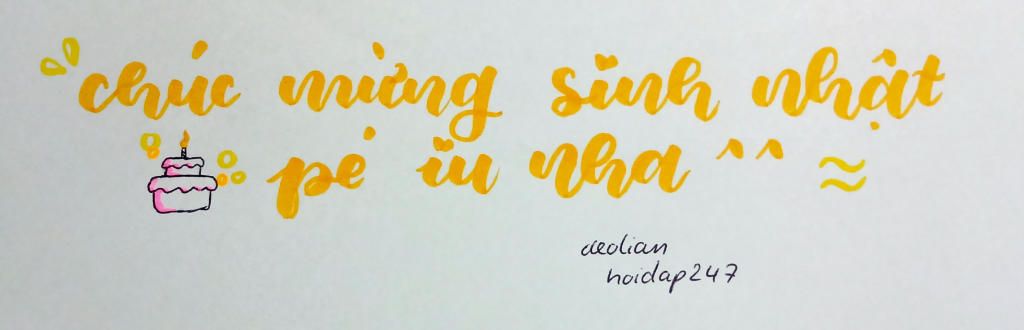 chúc mừng sinh nhật
pé iu nha ^^
aeolian
hoidap247